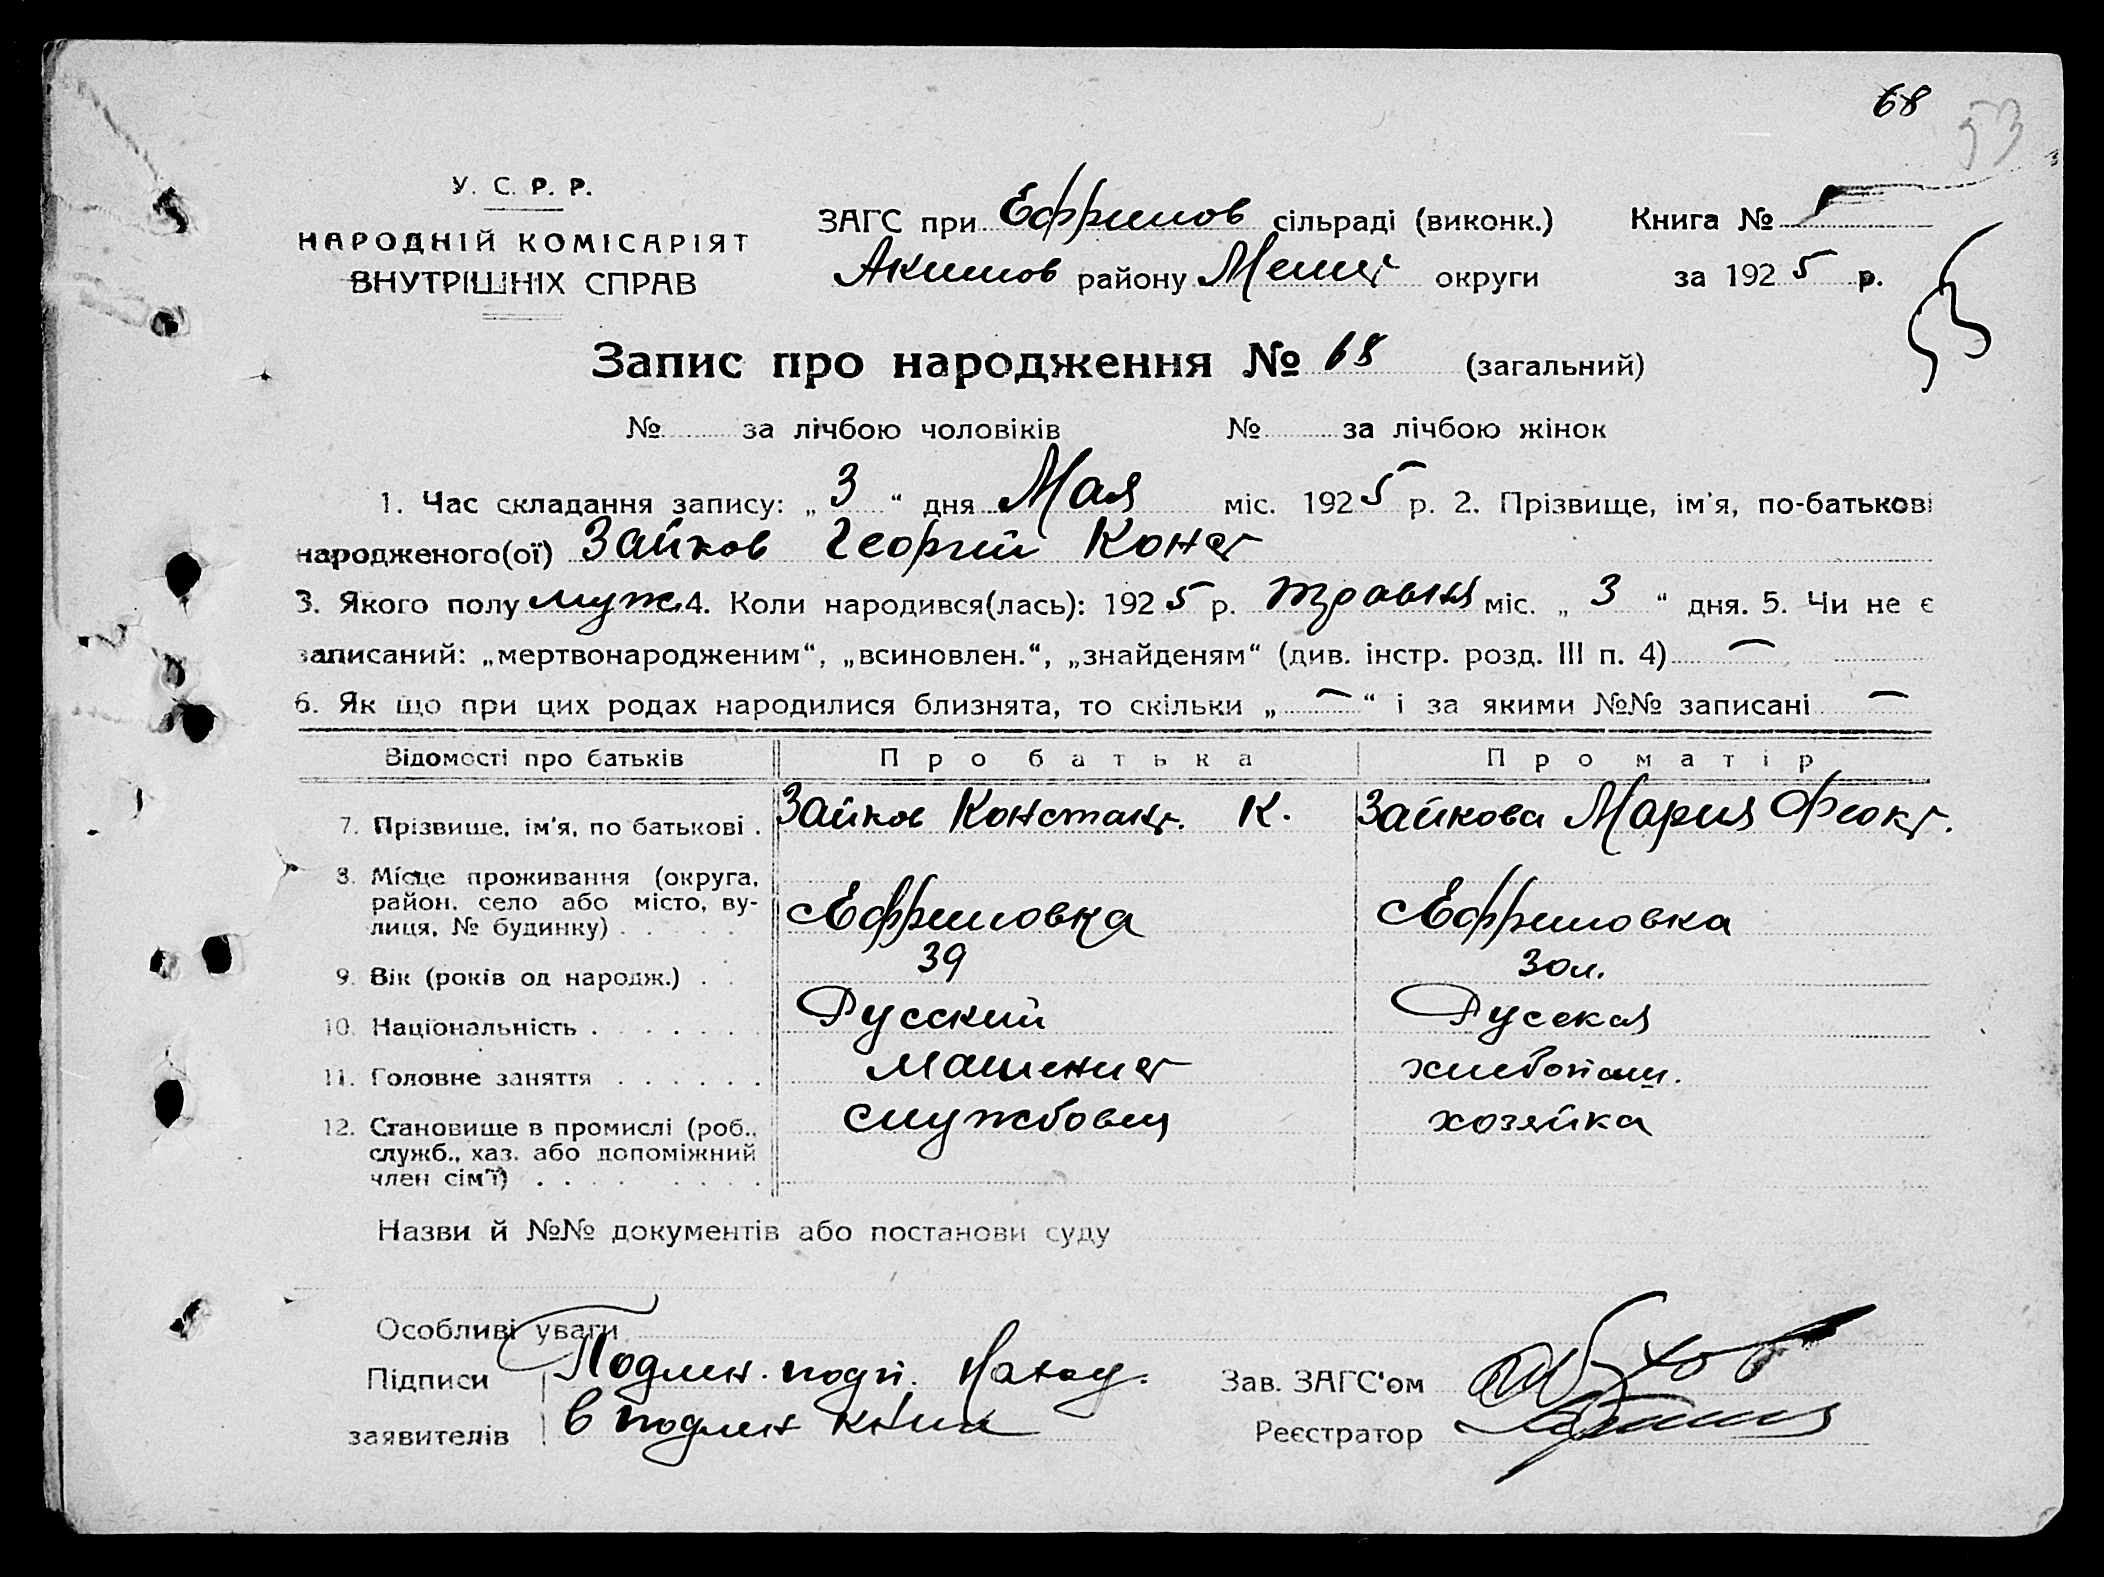 68
53
У. С. Р. Р.
НАРОДНІЙ КОМІСАРІЯТ
ВНУТРІШНІХ СПРАВ
ЗАГС при Ефримов сільраді (виконк.) Книга №
Акимов району Мелит округи за 1925 р.
53
Запис про народження № 68 (загальний)
№ за лічбою чоловіків № за лічбою жінок
1. Час складання запису: „ 3 “ дня Мая міс. 1925 р. 2. Прізвище, ім'я, по-батькові
народженого(ої) Зайков Георгій Конст
3. Якого полу муж. 4. Коли народився(лась): 1925 р. травня міс. „ 3 “ дня. 5. Чи не є
записаний: „мертвонародженим“, „всиновлен.“, „знайденям“ (див. інстр. розд. III п. 4) —
6. Як що при цих родах народилися близнята, то скільки „ — “ і за якими №№ записані —
Відомості про батьків Про батька Про матір
7. Прізвище, ім'я, по батькові . Зайков Констант. К. Зайкова Мария Феокт.
8. Місце проживання (округа,
район, село або місто, ву-
лиця, № будинку) . . . . . Ефримовка Ефримовка
9. Вік (років од народж.) . . 39 30 л.
10. Національність . . . . . . Русский Русская
11. Головне заняття . . . . . . машинист хлибопаш.
12. Становище в промислі (роб., службовец хозяйка
служб., хаз. або допоміжний
член сім'ї) . . . . . . . .
Назви й №№ документів або постанови суду
Особливі уваги
Підписи Подлин. подп. Наход. Зав. ЗАГС'ом
заявителів в подлин книги Реєстратор